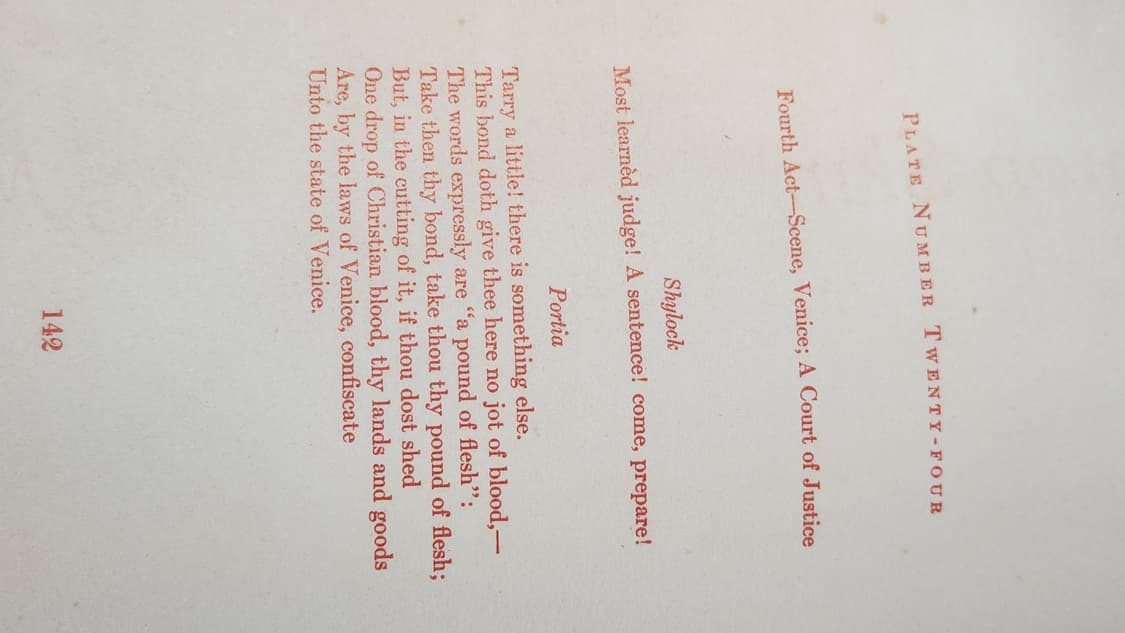 PLATE NUMBER TWENTY-FOUR
Fourth Act—Scene, Venice; A Court of Justice
Shylock
Most learnèd judge! A sentence! come, prepare!
Portia
Tarry a little! there is something else.
This bond doth give thee here no jot of blood,—
The words expressly are “a pound of flesh”:
Take then thy bond, take thou thy pound of flesh;
But, in the cutting of it, if thou dost shed
One drop of Christian blood, thy lands and goods
Are, by the laws of Venice, confiscate
Unto the state of Venice.
142